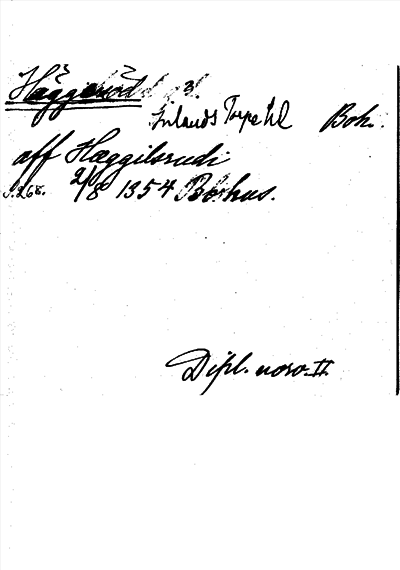 Häggeröd
Inlands Torpe hd Boh.
aff Hæggilsrudi
s. 268. 2/8 1354 Bohus.
Dipl. norv. II